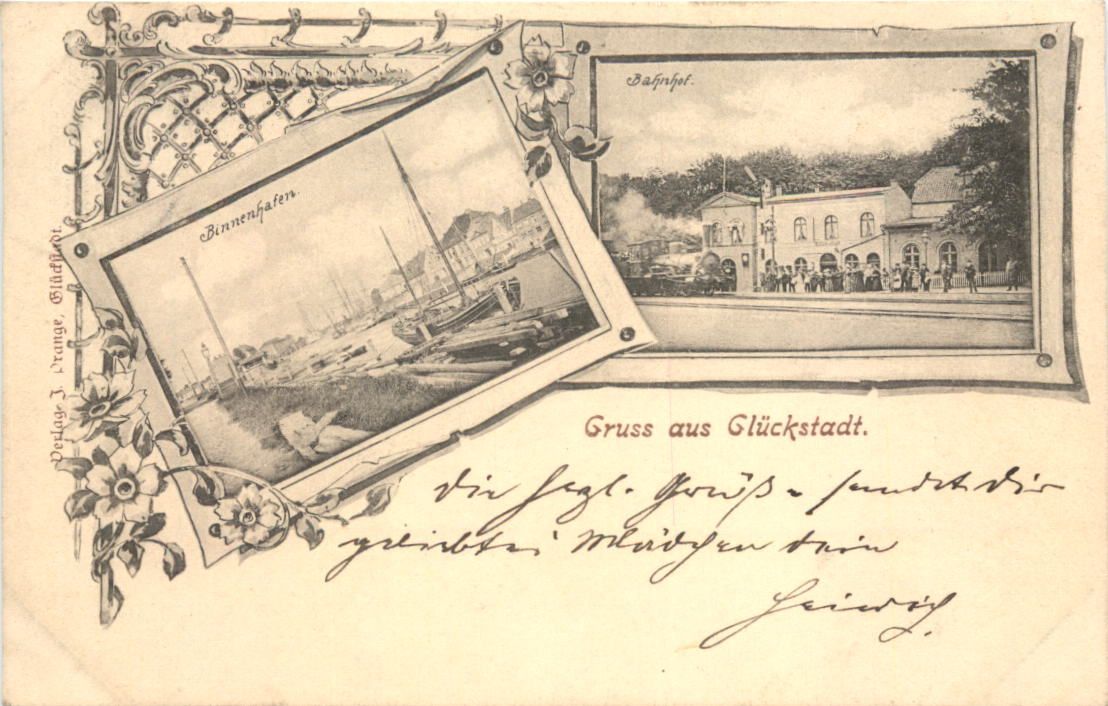 Bahnhof.
Binnenhafen.
Verlag J. Prange, Glückstadt.
Gruss aus Glückstadt.
Die herzl. Grüße sendet Dir
geliebtes Mädchen dein
Heinrich.